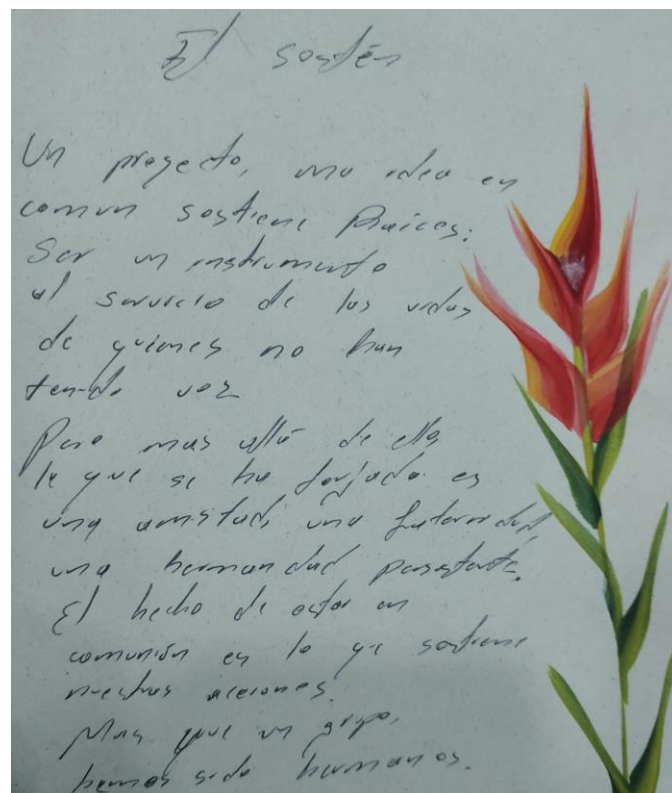 El sostén
Un proyecto, una idea en
comun sostiene Raíces:
Ser un instrumento
al servicio de las vidas
de quienes no han
tenido voz
Pero mas allá de ello,
lo que se ha forjado es
una amistad, una fraternidad,
una hermandad persistente.
El hecho de estar en
comunión es lo que sostiene
nuestras acciones.
Mas que un grupo,
hemos sido hermanos.